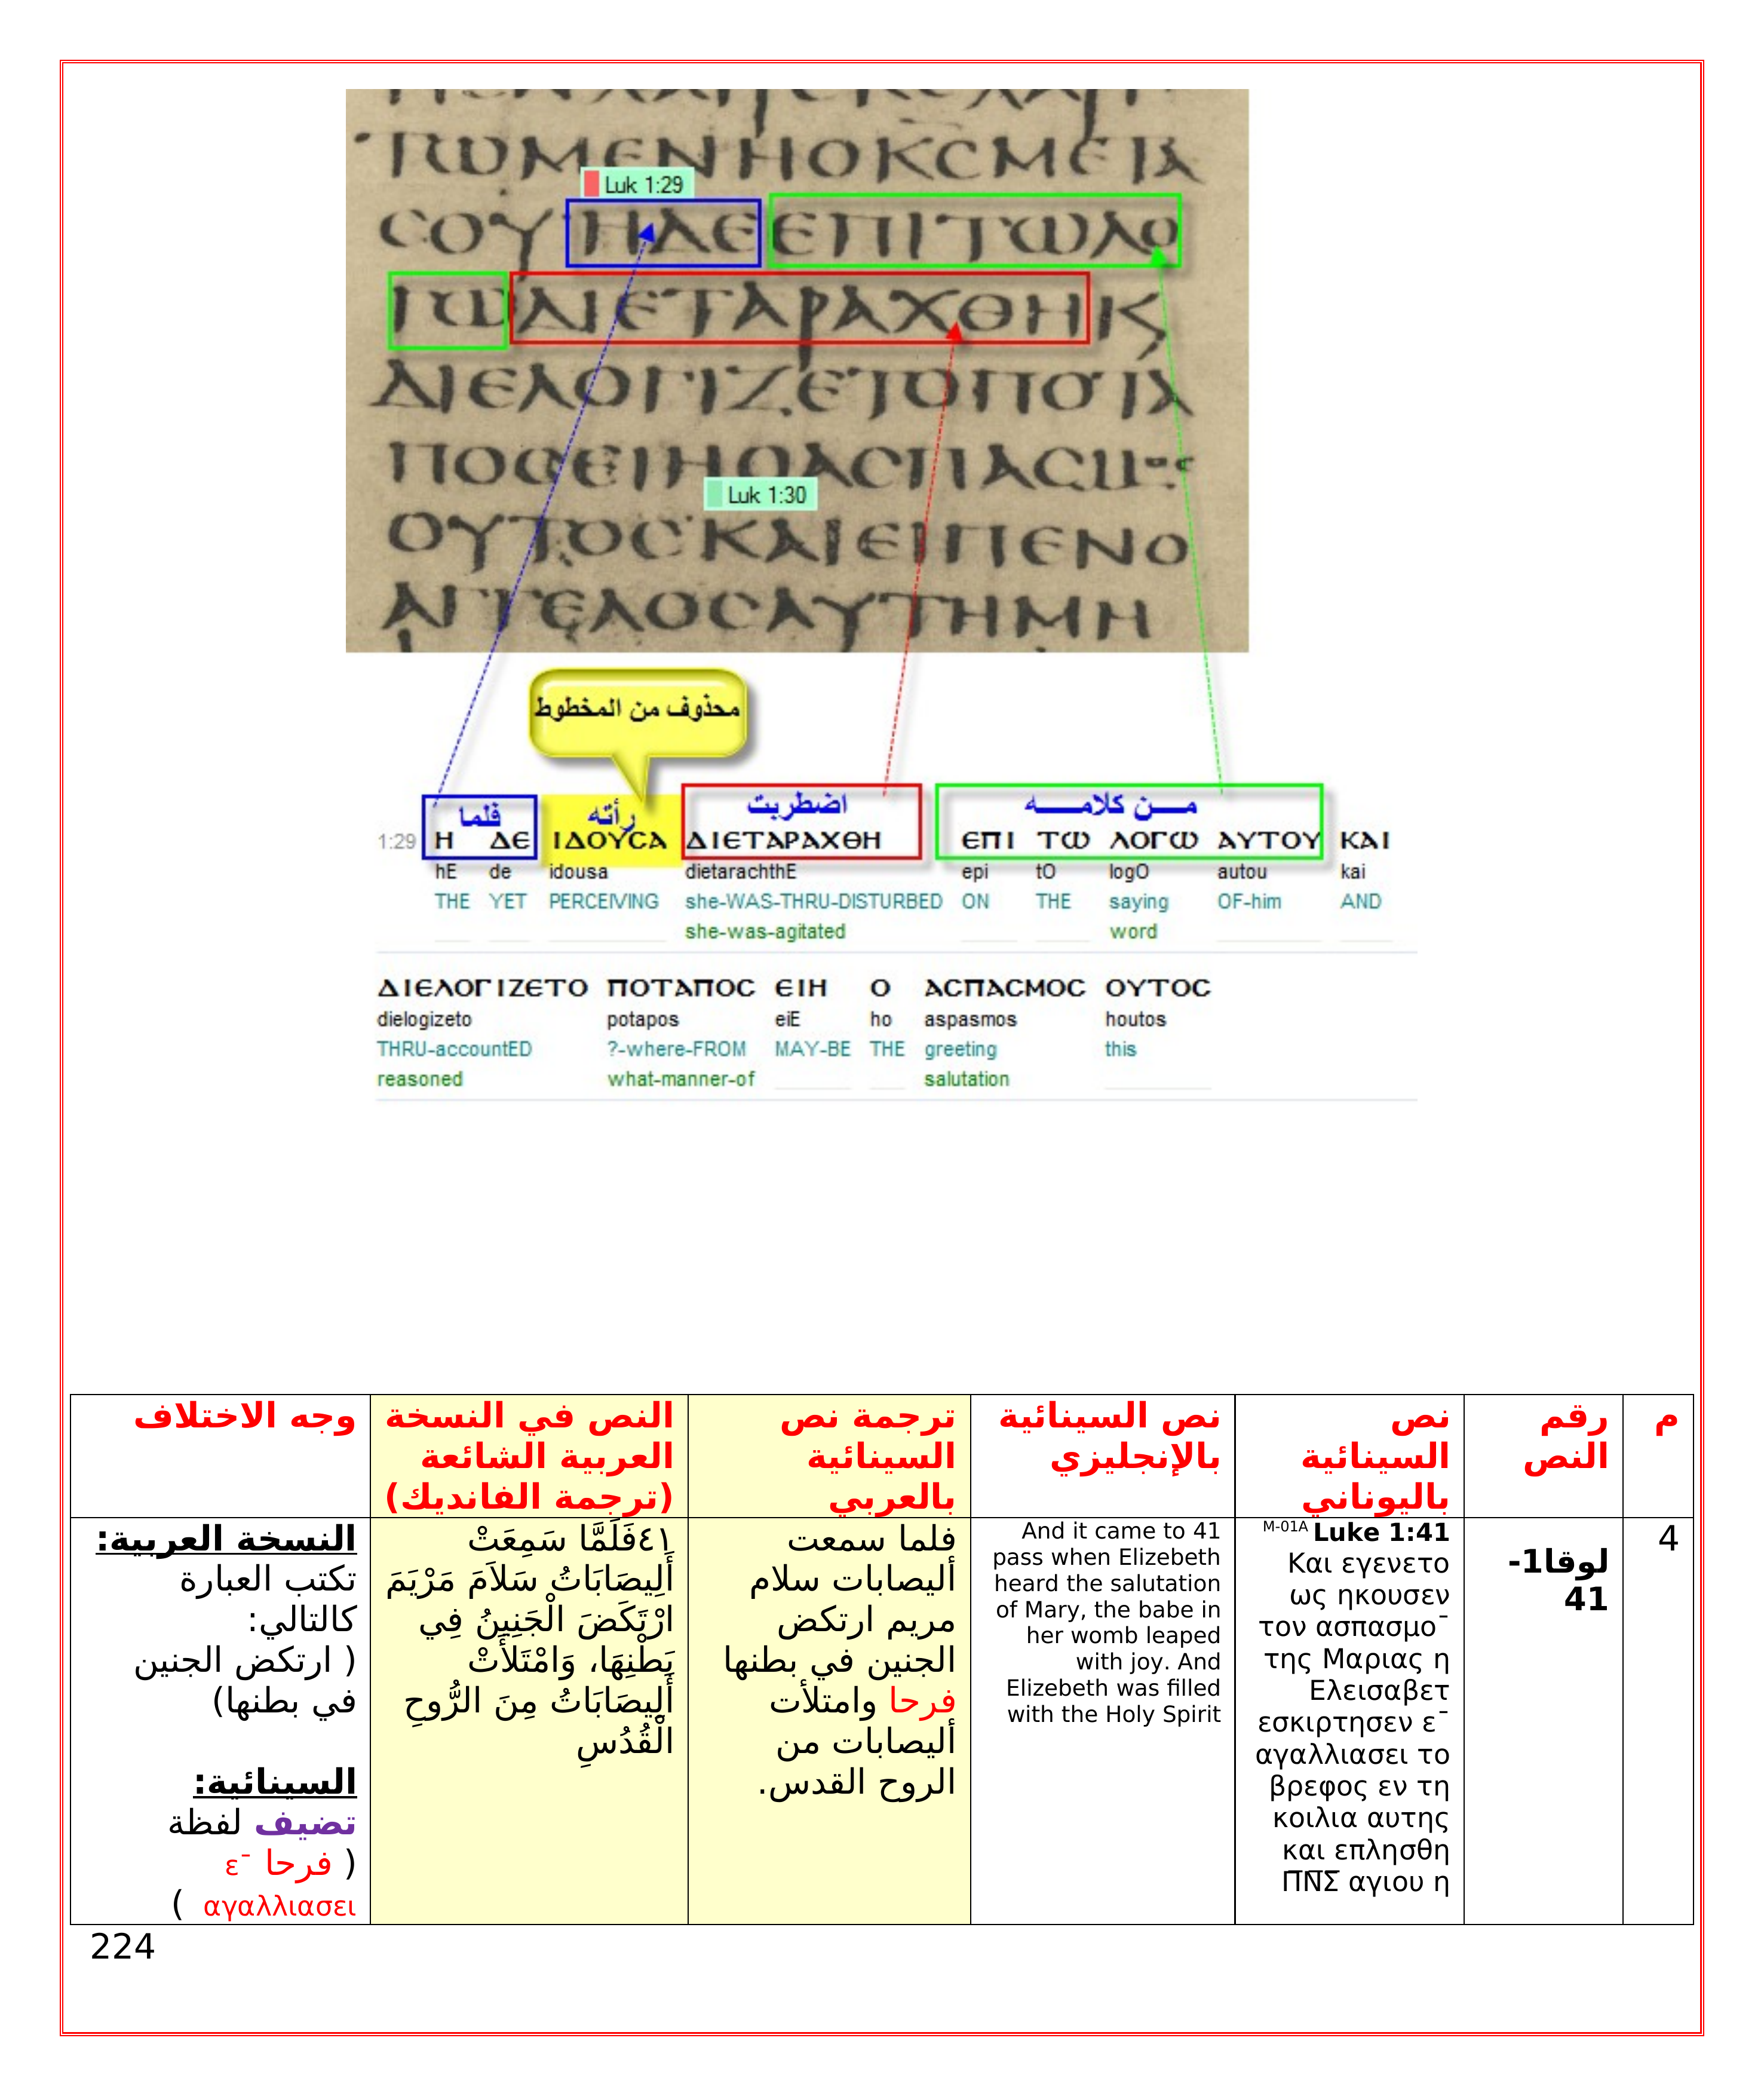 ΤΩΜΕΝΗΟΚϹΜΕΤΑ
Luk 1:29
ϹΟΥΗΔΕΕΠΙΤΩΛΟ
ΓΩΔΙΕΤΑΡΑΧΘΗΚ
ΔΙΕΛΟΓΙΖΕΤΟΠΟΤΑ
ΠΟϹΕΙΗΟΑϹΠΑϹΜΟϹ
Luk 1:30
ΟΥΤΟϹΚΑΙΕΙΠΕΝΟ
ΑΓΓΕΛΟϹΑΥΤΗΜΗ
محذوف من المخطوط
فلما رأته اضطربت مــن كلامــــه
1:29 Η ΔΕ ΙΔΟΥϹΑ ΔΙΕΤΑΡΑΧΘΗ ΕΠΙ ΤΩ ΛΟΓΩ ΑΥΤΟΥ ΚΑΙ
hE de idousa dietarachthE epi tO logO autou kai
THE YET PERCEIVING she-WAS-THRU-DISTURBED ON THE saying OF-him AND
she-was-agitated word
ΔΙΕΛΟΓΙΖΕΤΟ ΠΟΤΑΠΟϹ ΕΙΗ Ο ΑϹΠΑϹΜΟϹ ΟΥΤΟϹ
dielogizeto potapos eiE ho aspasmos houtos
THRU-accountED ?-where-FROM MAY-BE THE greeting this
reasoned what-manner-of salutation
م
رقم
النص
نص
السينائية
باليوناني
نص السينائية
بالإنجليزي
ترجمة نص
السينائية
بالعربي
النص في النسخة
العربية الشائعة
(ترجمة الفانديك)
وجه الاختلاف
4
لوقا1-
41
M-01A Luke 1:41
Και εγενετο
ως ηκουσεν
τον ασπασμο¯
της Μαριας η
Ελεισαβετ
εσκιρτησεν ε¯
αγαλλιασει το
βρεφος εν τη
κοιλια αυτης
και επλησθη
Π̅Ν̅Σ̅ αγιου η
And it came to 41
pass when Elizebeth
heard the salutation
of Mary, the babe in
her womb leaped
with joy. And
Elizebeth was filled
with the Holy Spirit
فلما سمعت
أليصابات سلام
مريم ارتكض
الجنين في بطنها
فرحا وامتلأت
أليصابات من
الروح القدس.
٤١فَلَمَّا سَمِعَتْ
أَلِيصَابَاتُ سَلاَمَ مَرْيَمَ
ارْتَكَضَ الْجَنِينُ فِي
بَطْنِهَا، وَامْتَلأَتْ
أَلِيصَابَاتُ مِنَ الرُّوحِ
الْقُدُسِ
النسخة العربية:
تكتب العبارة
كالتالي:
( ارتكض الجنين
في بطنها)
السينائية:
تضيف لفظة
( فرحا ε¯
αγαλλιασει )
224